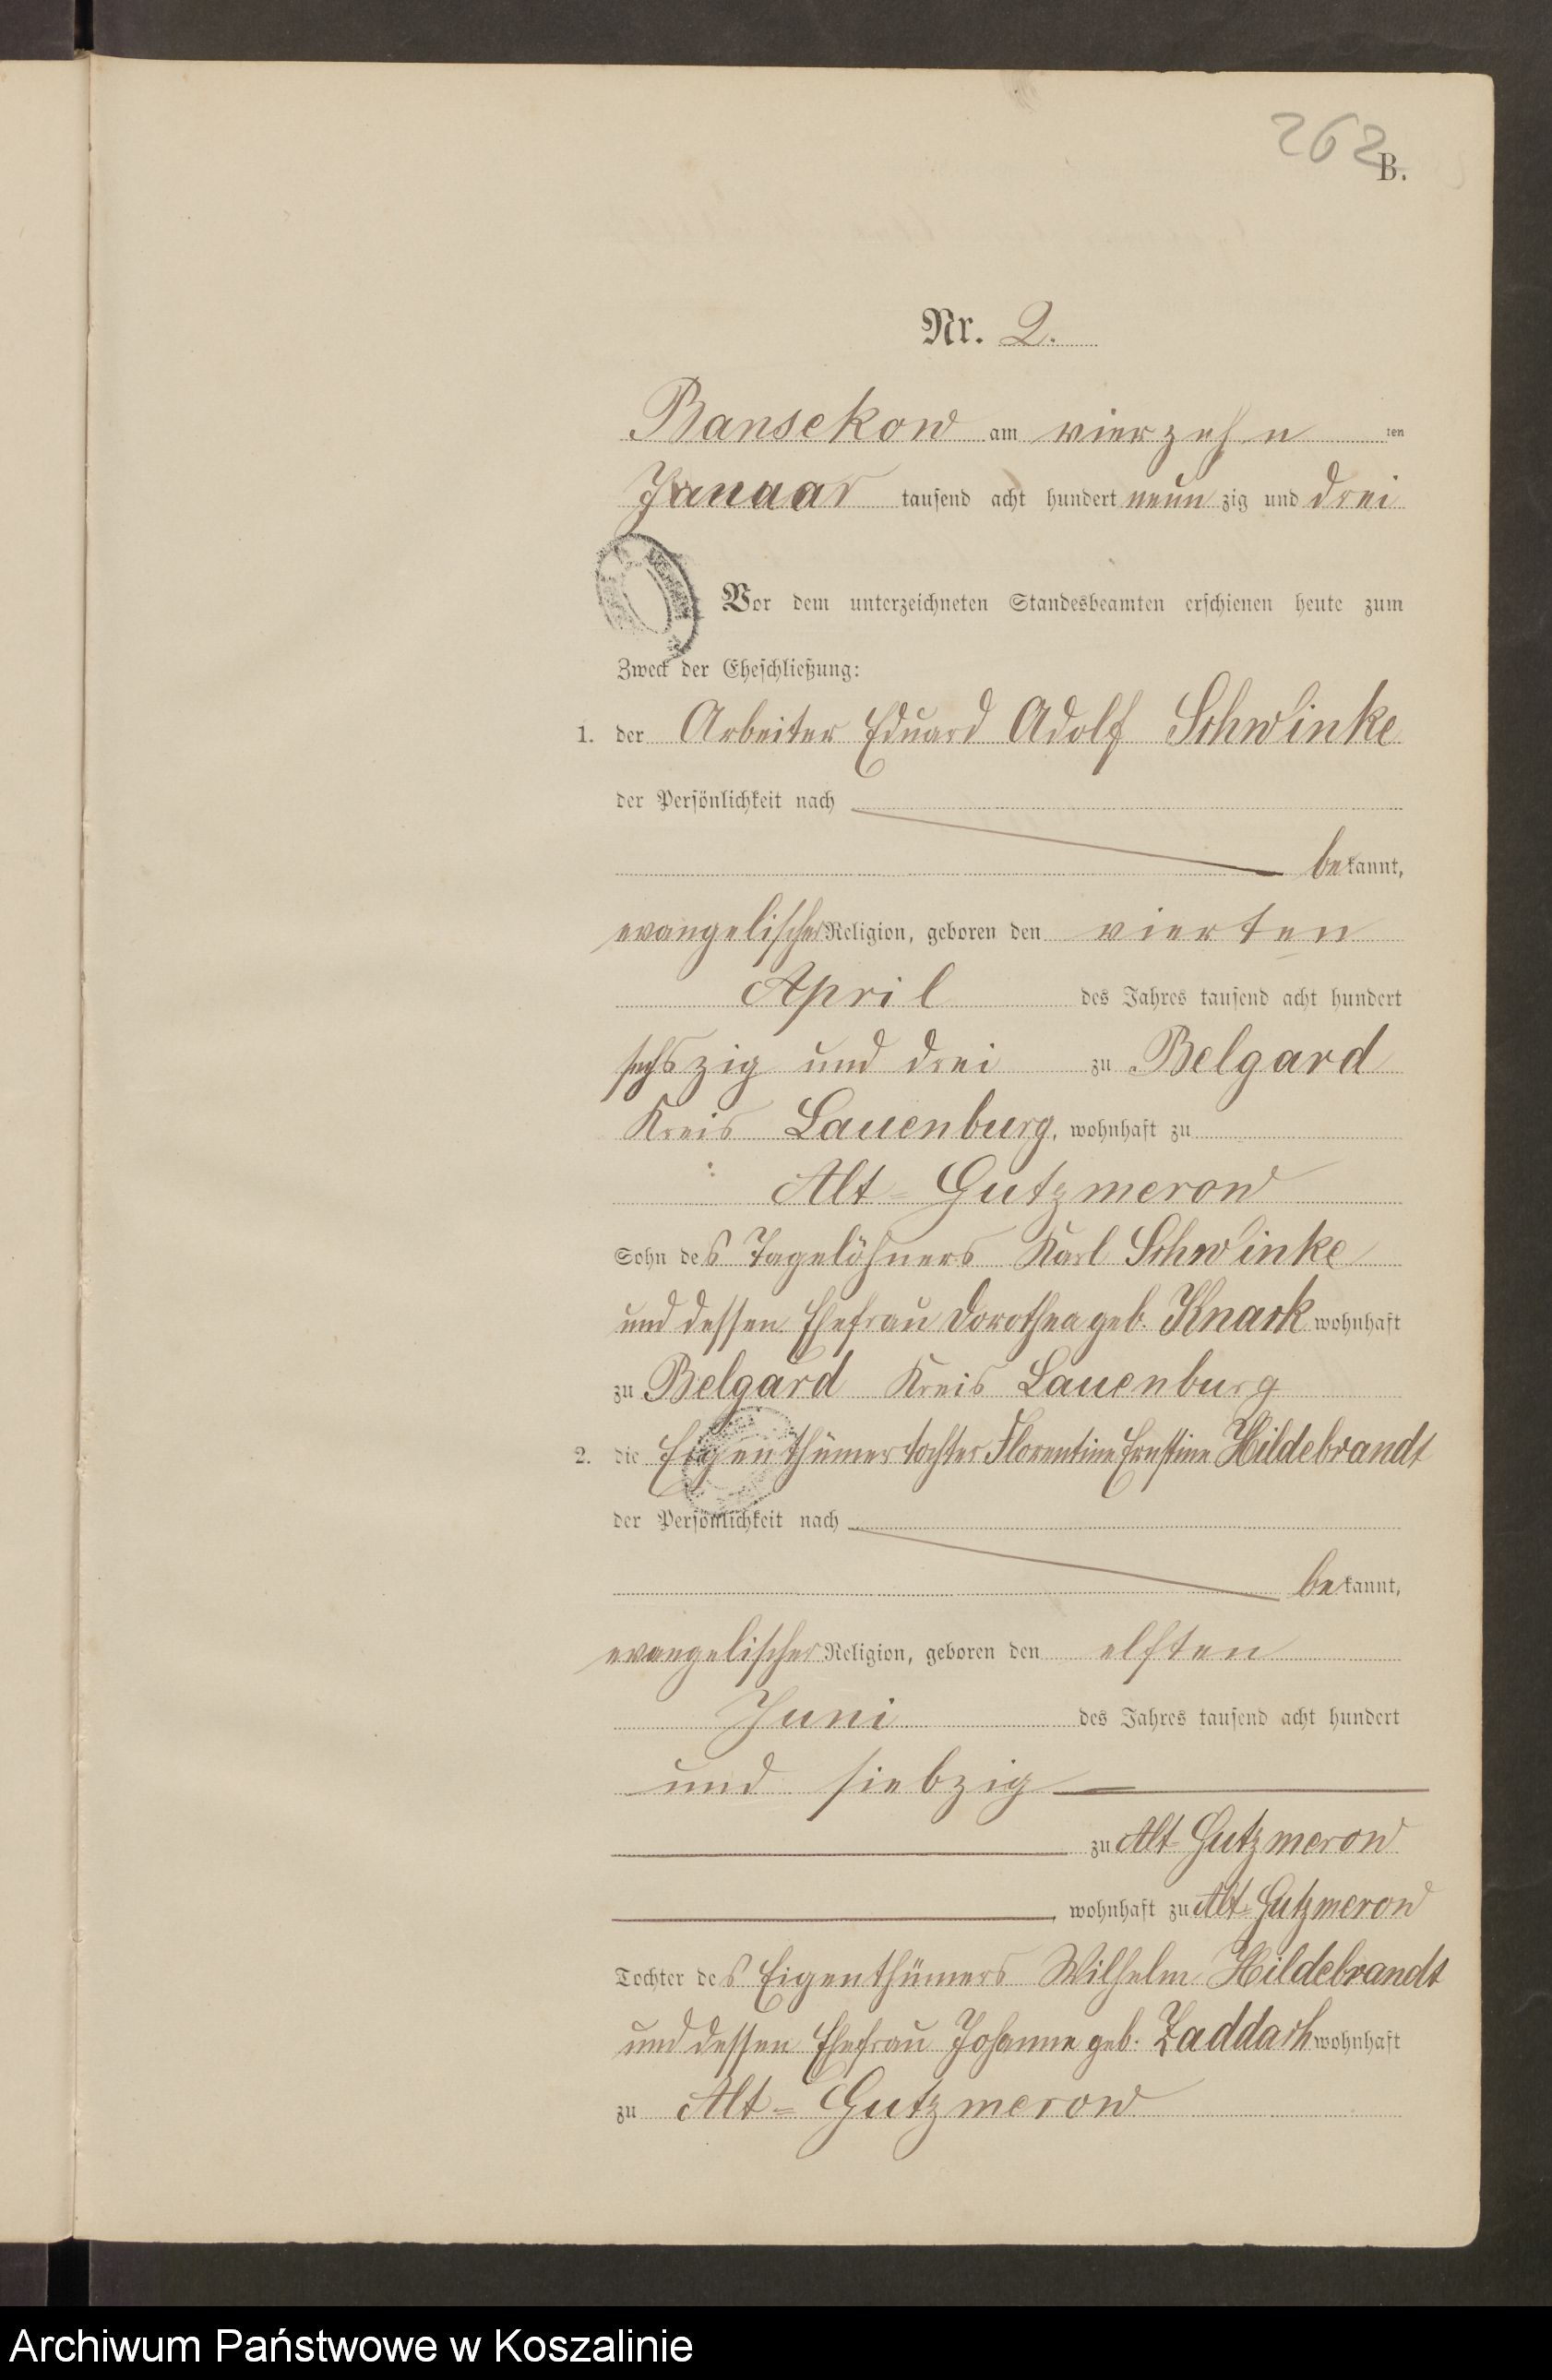 262
B.
Nr. 2.
Bansekow am vierzehn ten
Januar tausend acht hundert neun zig und drei
Vor dem unterzeichneten Standesbeamten erschienen heute zum
Zweck der Eheschließung:
1. der Arbeiter Eduard Adolf Schwinke
der Persönlichkeit nach
be kannt,
evangelischer Religion, geboren den vierten
April des Jahres tausend acht hundert
sechszig und drei zu Belgard
Kreis Lauenburg, wohnhaft zu
Alt-Gutzmerow
Sohn des Tagelöhners Karl Schwinke
und dessen Ehefrau Dorothea geb. Knack wohnhaft
zu Belgard Kreis Lauenburg
2. die Eigenthümertochter Florentine Ernstine Hildebrandt
der Persönlichkeit nach
be kannt,
evangelischer Religion, geboren den elften
Juni des Jahres tausend acht hundert
und siebzig
zu Alt-Gutzmerow
, wohnhaft zu Alt-Gutzmerow
Tochter des Eigenthümers Wilhelm Hildebrandt
und dessen Ehefrau Johanne geb. Zaddach wohnhaft
zu Alt-Gutzmerow
Archiwum Państwowe w Koszalinie